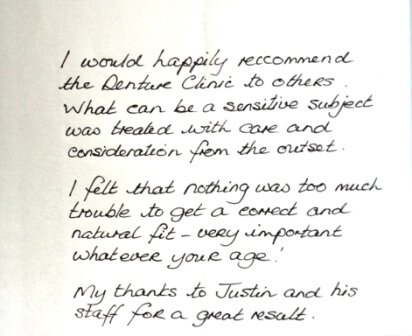 I would happily reccommend
the Denture Clinic to others.
What can be a sensitive subject
was treated with care and
consideration from the outset.
I felt that nothing was too much
trouble to get a correct and
natural fit - very important
whatever your age!
My thanks to Justin and his
staff for a great result.